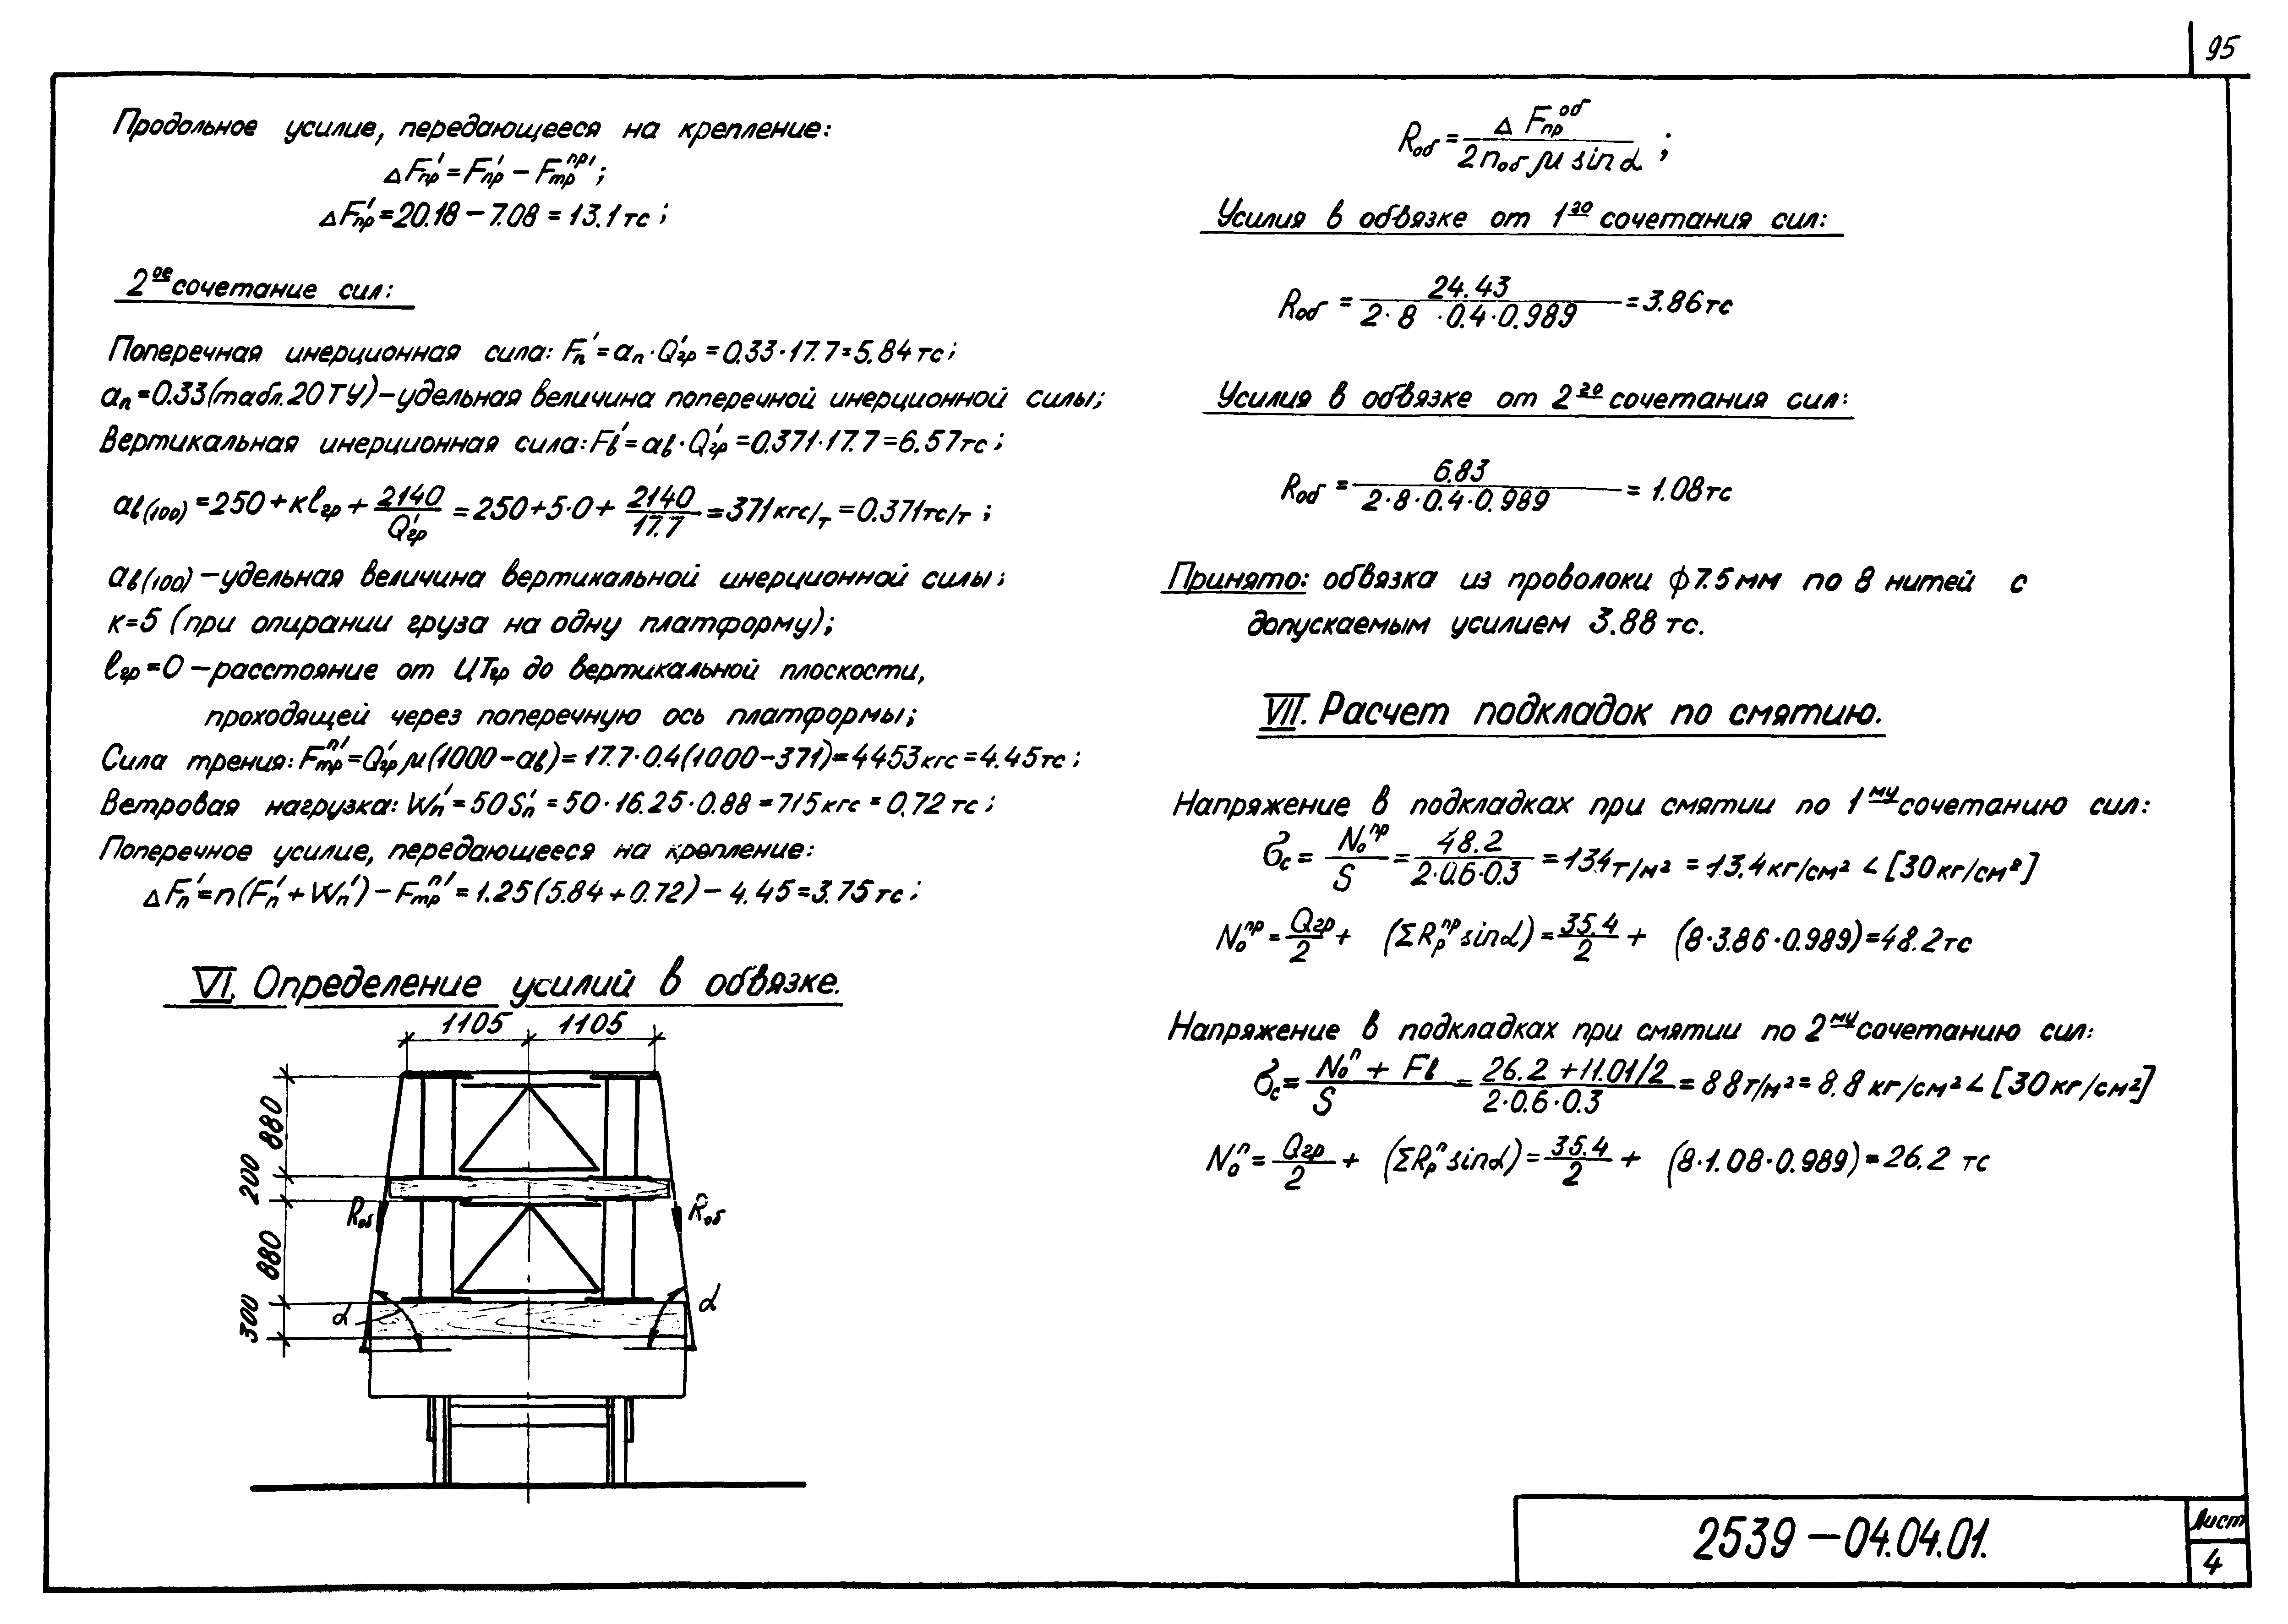 95
Продольное усилие, передающееся на крепление:
ΔFпр' = Fпр' − Fтр^пр';
ΔFпр' = 20.18 − 7.08 = 13.1 тс;
2ое сочетание сил:
Поперечная инерционная сила: Fп' = aп · Qгр' = 0.33 · 17.7 = 5.84 тс;
aп = 0.33 (табл. 20 ТУ) – удельная величина поперечной инерционной силы;
Вертикальная инерционная сила: Fв' = aв · Qгр' = 0.371 · 17.7 = 6.57 тс;
aв(100) = 250 + кℓгр + 2140/Qгр' = 250 + 5·0 + 2140/17.7 = 371 кгс/т = 0.371 тс/т;
aв(100) – удельная величина вертикальной инерционной силы;
к=5 (при опирании груза на одну платформу);
ℓгр = 0 – расстояние от ЦТгр до вертикальной плоскости,
проходящей через поперечную ось платформы;
Сила трения: Fтр^п' = Qгр' μ (1000 − aв) = 17.7 · 0.4 (1000 − 371) = 4453 кгс = 4.45 тс;
Ветровая нагрузка: Wп' = 50 Sп' = 50 · 16.25 · 0.88 = 715 кгс = 0.72 тс;
Поперечное усилие, передающееся на крепление:
ΔFп' = n(Fп' + Wп') − Fтр^п' = 1.25 (5.84 + 0.72) − 4.45 = 3.75 тс;
VI. Определение усилий в обвязке.
1105 1105
880
200
Rоб Rоб
880
300
α α
Rоб = ΔFпр^об / 2 nоб μ sin α ;
Усилия в обвязке от 1го сочетания сил:
Rоб = 24.43 / 2·8 ·0.4·0.989 = 3.86 тс
Усилия в обвязке от 2го сочетания сил:
Rоб = 6.83 / 2·8·0.4·0.989 = 1.08 тс
Принято: обвязка из проволоки ф 7.5 мм по 8 нитей с
допускаемым усилием 3.88 тс.
VII. Расчет подкладок по смятию.
Напряжение в подкладках при смятии по 1му сочетанию сил:
σс = Nо^пр / S = 48.2 / 2·0.6·0.3 = 134 т/м² = 13.4 кг/см² < [30 кг/см²]
Nо^пр = Qгр/2 + (ΣRр^пр sin α) = 35.4/2 + (8·3.86·0.989) = 48.2 тс
Напряжение в подкладках при смятии по 2му сочетанию сил:
σс = Nо^п + Fв / S = 26.2 + 11.01/2 / 2·0.6·0.3 = 88 т/м² = 8.8 кг/см² < [30 кг/см²]
Nо^п = Qгр/2 + (ΣRр^п sin α) = 35.4/2 + (8·1.08·0.989) = 26.2 тс
2539 – 04.04.01.
Лист
4